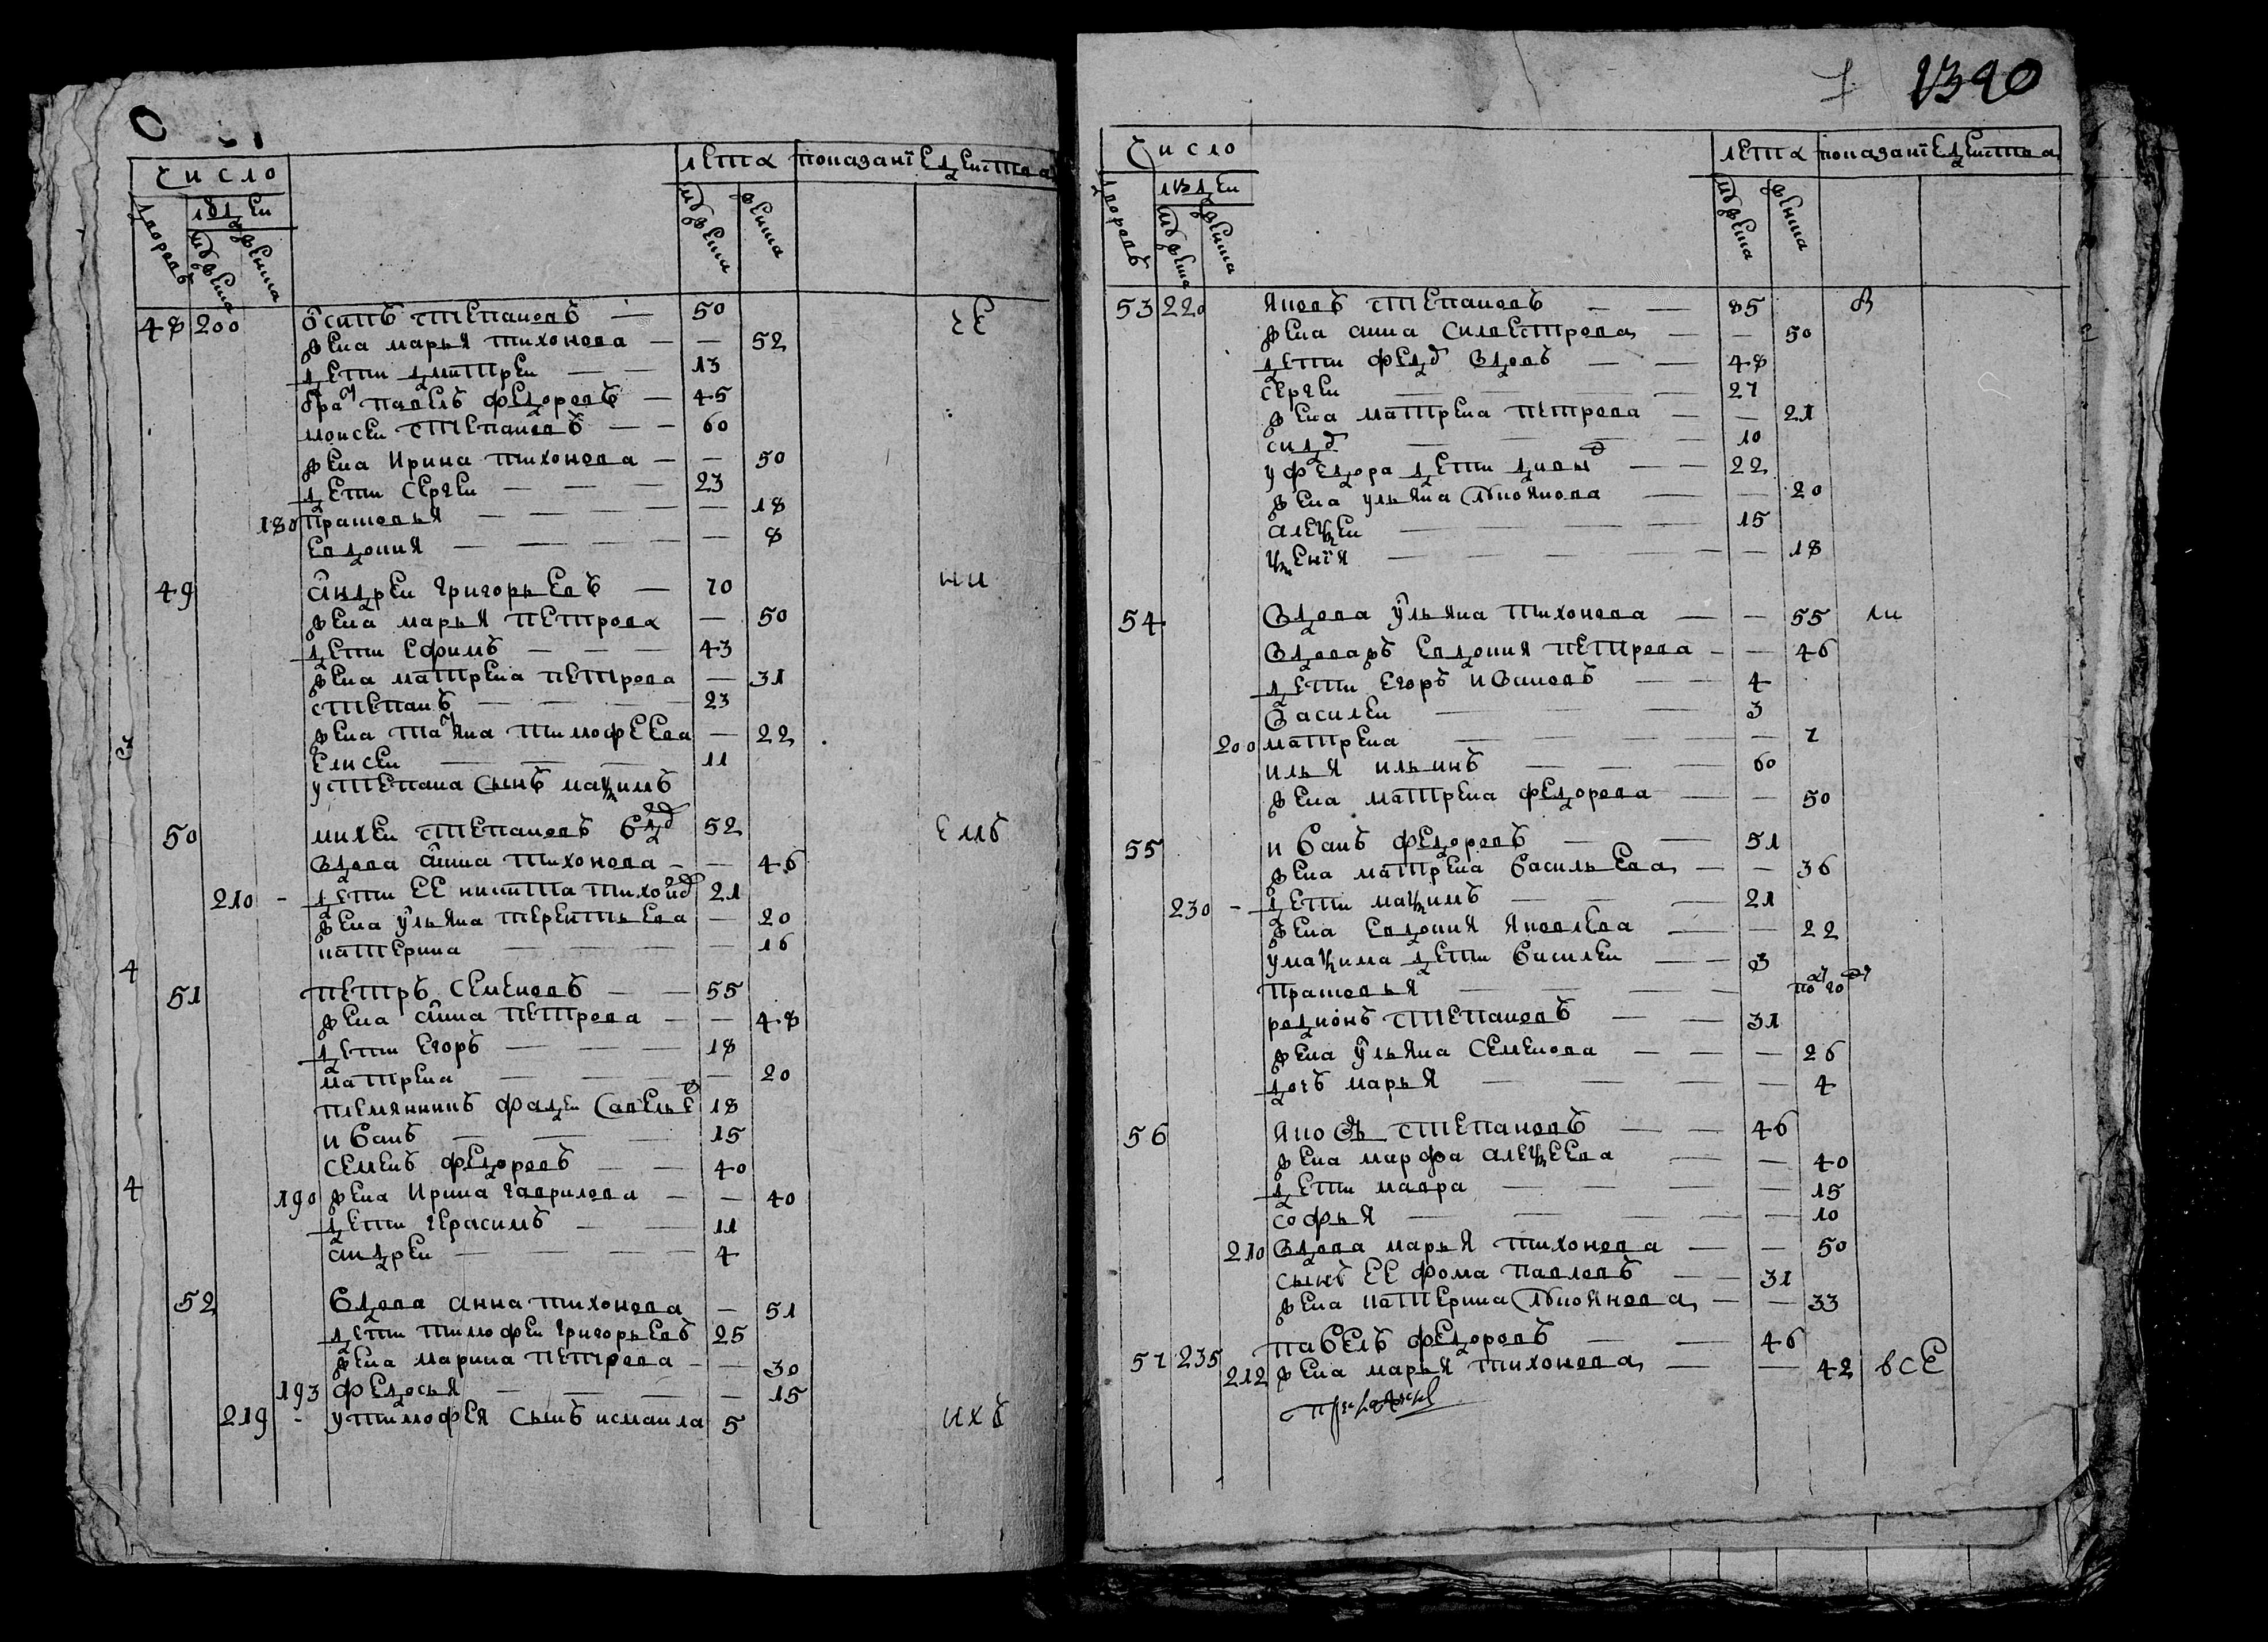 1390
число
лета
показание действа
дворовъ
людеи
мужеска
женска
мужеска
женска
48 200 Осипъ степановъ — 50
жена марья тихонова — — 52
дети дмитреи — — 13
братъ павелъ федоровъ — 45
моисеи степановъ — — 60
жена Ирина тихонова — — 50
дети сергеи — — — 23
180 прасковья — — — — — 18
евдокия — — — — — 8
49 андреи григорьевъ — 70
жена марья петрова — 50
дети ефимъ — — — 43
жена матрена петрова — 31
степанъ — — — — 23
жена татьяна тимофеева — 22
елисеи — — — 11
у степана сынъ максимъ
50 михеи степановъ вдо 52
вдова анна тихонова — — 46
210 - дети ее никита тихоно 21
жена ульяна терентьева — 20
катерина — — — — 16
51 петръ семеновъ — — 55
жена анна петрова — — 48
дети егоръ — — — 18
матрена — — — — 20
племянникъ фадеи савелье 18
иванъ — — — 15
4
семенъ федоровъ — — 40
4
190 жена Ирина гаврилова — — 40
дети герасимъ — — 11
андреи — — — — 4
52 вдова анна тихонова — 51
дети тимофеи григорьевъ 25
жена марина петрова — — 30
193 федосья — — — — 15
219 - у тимофея сынъ исмаила 5
число
лета
показание действа
дворовъ
людеи
мужеска
женска
мужеска
женска
53 220 яковъ степановъ — — 85 в
жена анна силвестрова — — 50
дети федо вдовъ — — 48
сергеи — — — 27
жена матрена петрова — — 21
сидо — — — — 10
у федора дети — — 22
жена ульяна — — 20
алексеи — — — — 15
ксения — — — — — 18
54 вдова ульяна тихонова — — 55 ли
вдова евдокия петрова — — 46
дети егоръ ивановъ — — 4
василеи — — — 3
200 матрена — — — — — 7
илья ильинъ — — — 60
жена матрена федорова — — 50
55 иванъ федоровъ — — 51
жена матрена васильева — — 36
230 - дети максимъ — — — 21
жена евдокия яковлева — — 22
у максима дети василеи — — 3
прасковья — — — — полгода
родионъ степановъ — — 31
жена ульяна семенова — — — 26
дочь марья — — — — 4
56 яковъ степановъ — — 46
жена марфа алексеева — — 40
дети мавра — — — — 15
софья — — — — — 10
210 вдова марья тихонова — — 50
сынъ ее фома павловъ — — 31
жена катерина — — 33
павелъ федоровъ — — 46
57 235 212 жена марья тихонова — — 42 все